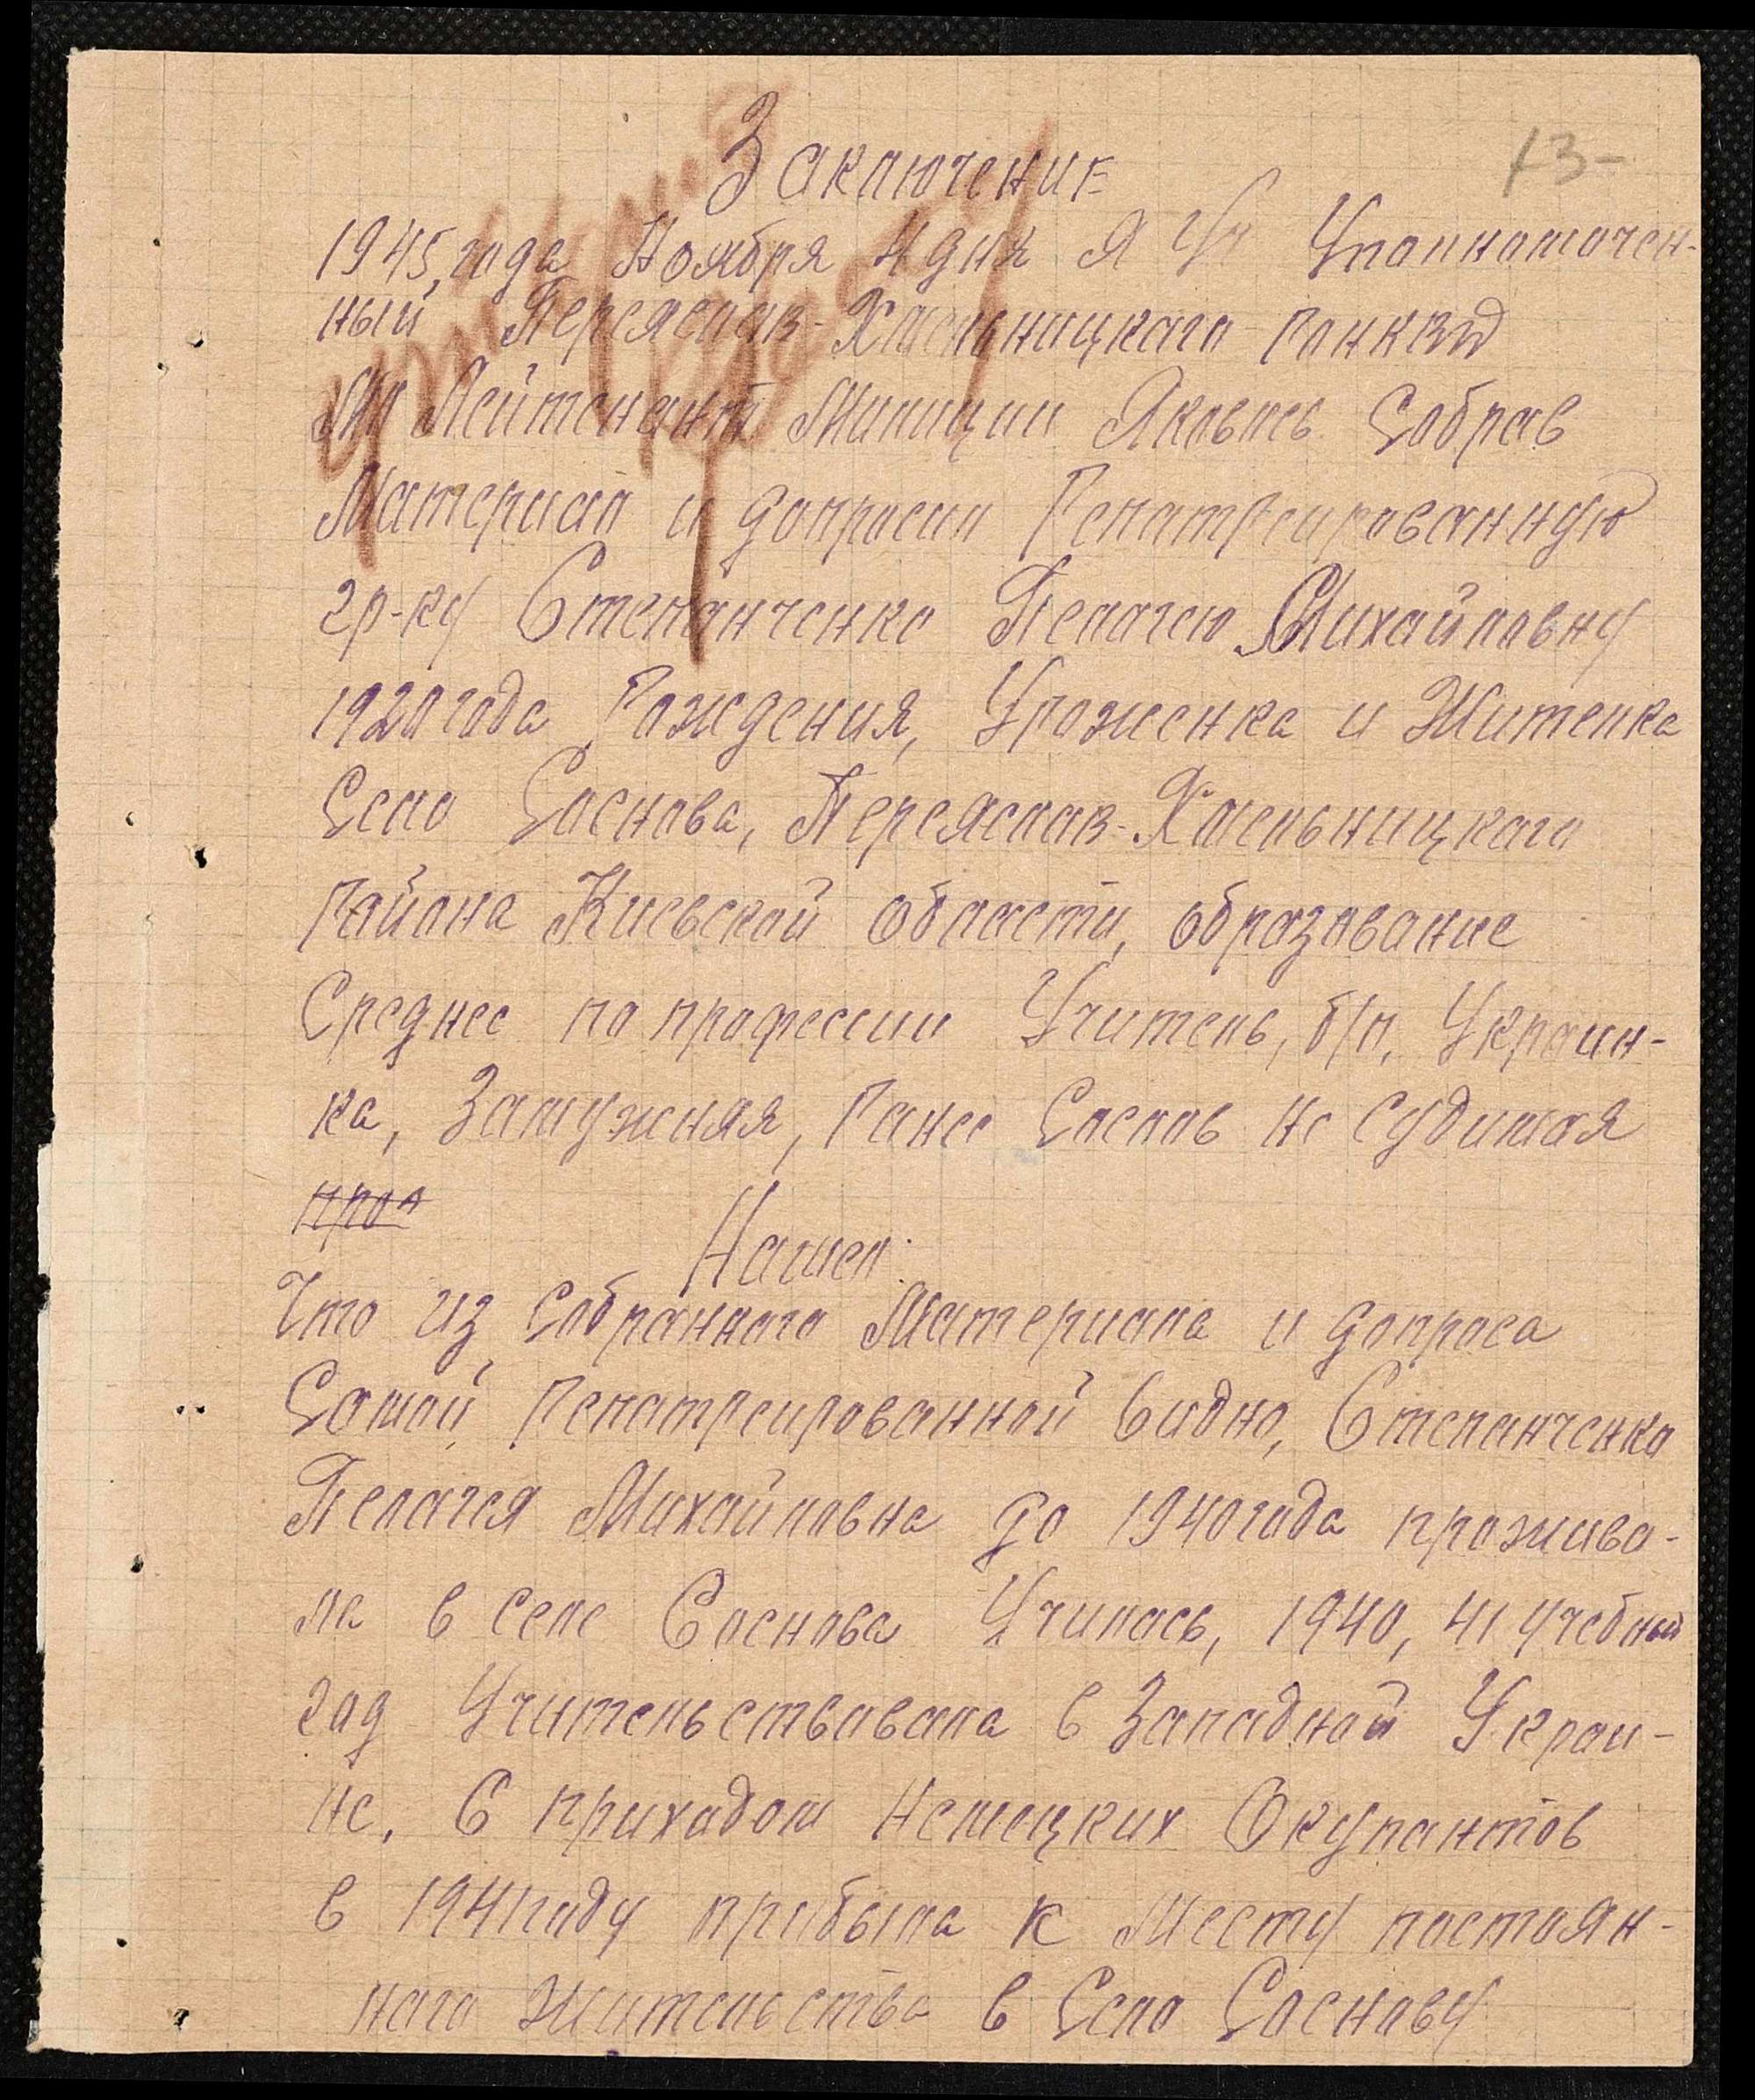 Заключение
13-
1945 года Ноября 4 дня Я Уч Уполномочен-
ный Переяслав-Хмельницкаго РОНКВД
Мл Лейтенант Милиции Яковлев Собрав
Материал и допросил Репатреированную
гр-ку Степанченко Пелагею Михайловну
1920 года Рождения, Уроженка и Жителка
Село Соснова, Переяслав-Хмельницкаго
Района Киевской области, образование
Среднее по професии Учитель, б/п, Украин-
ка, Замужняя, Ранее Сослов не Судимая
Нашел:
Что из Собранного Материала и допроса
Самой Репатреированной видно, Степанченко
Пелагея Михайловна до 1940 года прожива-
ла в селе Соснова Училась, 1940, 41 учебный
год Учительствовала в Западной Украи-
не. С приходом Немецких Окупантов
в 1941 году прибыла к Месту постоян-
ного Жительства в Село Соснову